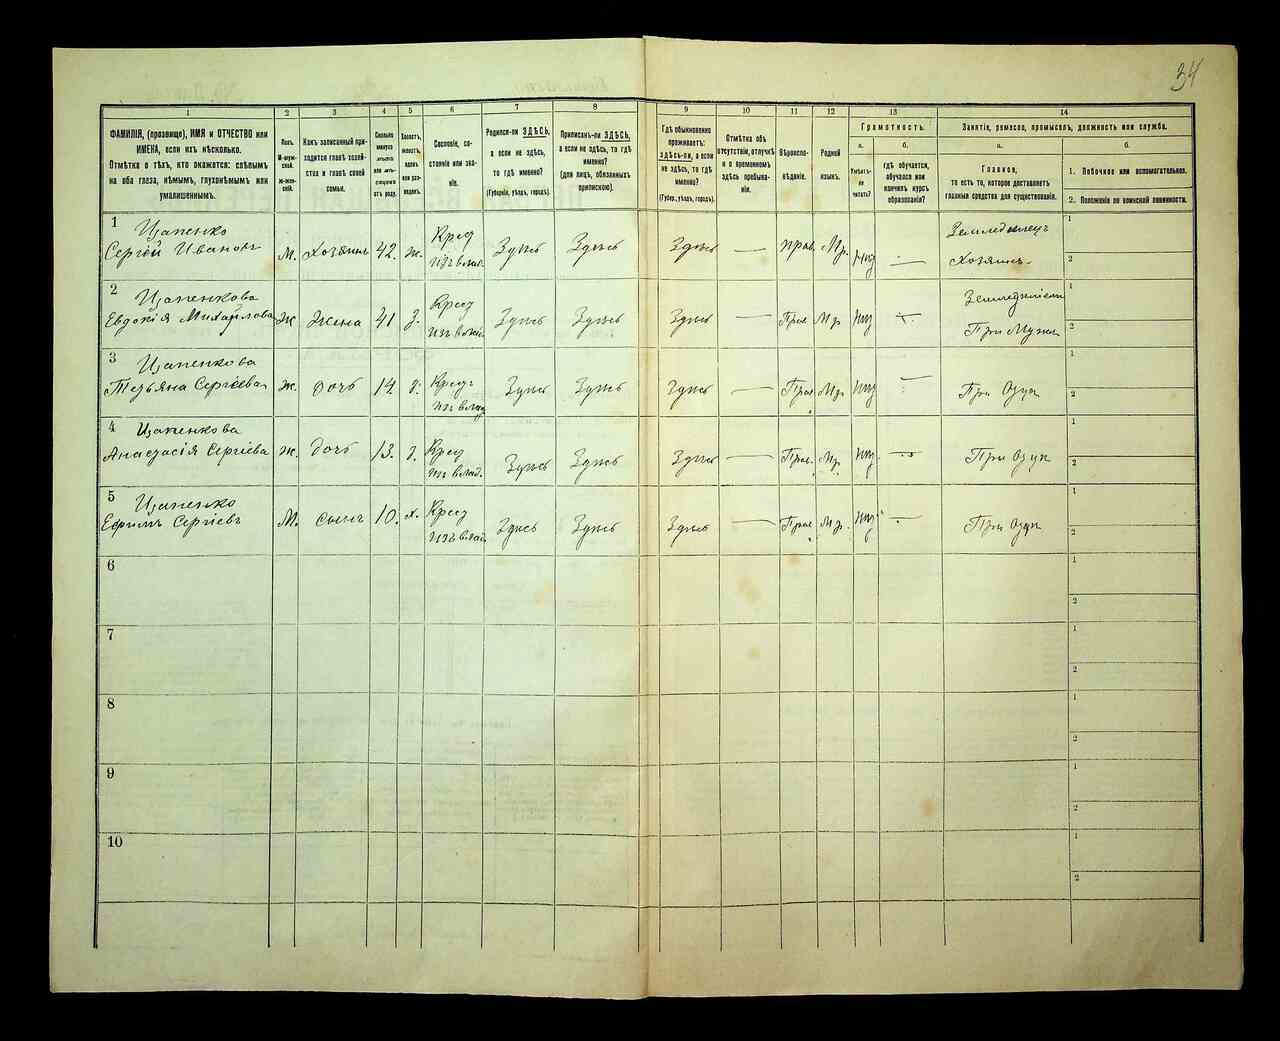 34
1 2 3 4 5 6 7 8 9 10 11 12 13 14
ФАМИЛІЯ, (прозвище), ИМЯ и ОТЧЕСТВО или ИМЕНА, если ихъ нѣсколько.
Отмѣтка о тѣхъ, кто окажется: слѣпымъ на оба глаза, нѣмымъ, глухонѣмымъ или умалишеннымъ.
Полъ.
М-мужской.
Ж-женскій.
Какъ записанный приходится главѣ хозяйства и главѣ своей семьи.
Сколько минуло лѣтъ или мѣсяцевъ отъ роду.
Холостъ, женатъ, вдовъ или разведенъ.
Сословіе, состояніе или званіе.
Родился-ли ЗДѢСЬ, а если не здѣсь, то гдѣ именно?
(Губернія, уѣздъ, городъ).
Приписанъ-ли ЗДѢСЬ, а если не здѣсь, то гдѣ именно?
(для лицъ, обязанныхъ припискою).
Гдѣ обыкновенно проживаетъ: ЗДѢСЬ-ли, а если не здѣсь, то гдѣ именно?
(Губер., уѣздъ, городъ).
Отмѣтка объ отсутствіи, отлучкѣ и о временномъ здѣсь пребываніи.
Вѣроисповѣданіе.
Родной языкъ.
Грамотность.
а.
Умѣетъ-ли читать?
б.
гдѣ обучается, обучался или кончилъ курсъ образованія?
Занятіе, ремесло, промыселъ, должность или служба.
а.
Главное,
то есть то, которое доставляетъ главныя средства для существованія.
б.
1. Побочное или вспомогательное.
2. Положеніе по воинской повинности.
1 Цапенко
Сергѣй Иванов М. Хозяинъ 42. ж. Крест изъ влад. Здѣсь Здѣсь Здѣсь — прав. Мр. нѣт — Земледѣлецъ Хозяинъ
1
2
2 Цапенкова
Евдокія Михайлова Ж Жена 41 з. Крест изъ влад. Здѣсь Здѣсь Здѣсь — Прав Мр нѣт — При Мужи
1
2
3 Цапенкова
Татьяна Сергѣева Ж. дочь 14. д. Крест изъ влад Здѣсь Здѣсь Здѣсь — Прав. Мр нѣт — При Отци
1
2
4 Цапенкова
Анастасія Сергѣева Ж. дочь 13. д. Крест изъ влад. Здѣсь Здѣсь Здѣсь — Прав. Мр. нѣт — При Отци
1
2
5 Цапенко
Ефримъ Сергѣевъ М. сынъ 10. х. Крест изъ влад Здѣсь Здѣсь Здѣсь — Прав. Мр. нѣт — При Отци
1
2
6
1
2
7
1
2
8
1
2
9
1
2
10
1
2